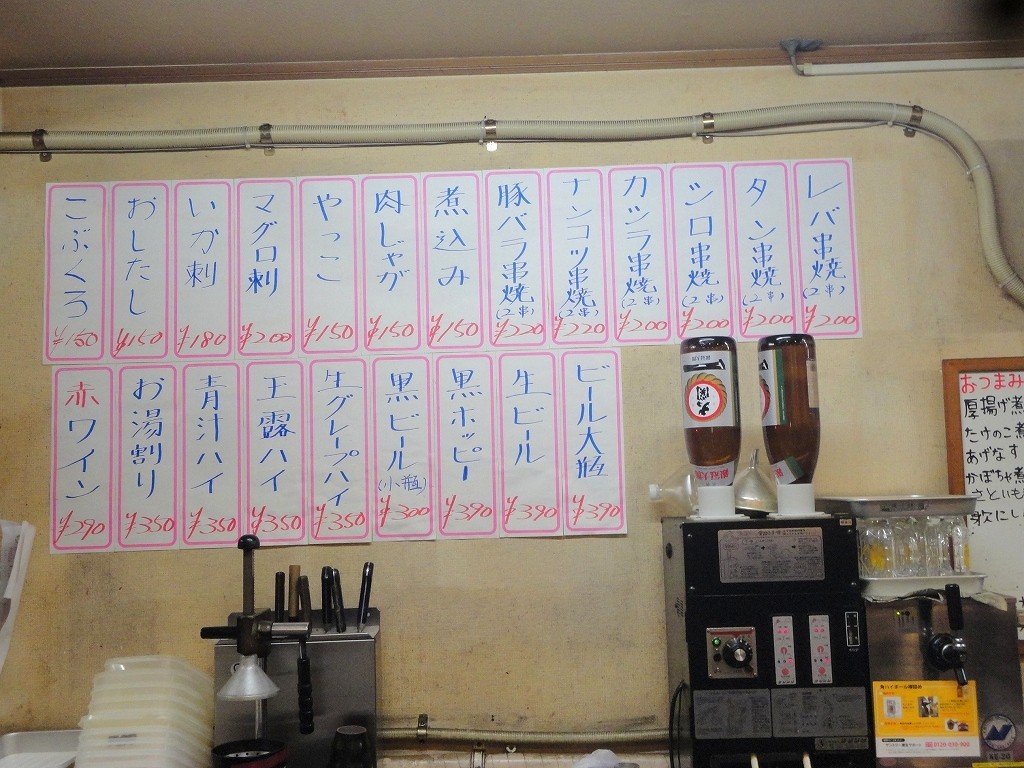 レバ串焼(2串)
¥200
タン串焼(2串)
¥200
シロ串焼(2串)
¥200
カシラ串焼(2串)
¥200
ナンコツ串焼(2串)
¥220
豚バラ串焼(2串)
¥220
煮込み
¥150
肉じゃが
¥150
やっこ
¥150
マグロ刺
¥200
いか刺
¥180
おしたし
¥150
こぶくろ
¥150
ビール大瓶
¥390
生ビール
¥390
黒ホッピー
¥390
黒ビール(小瓶)
¥300
生グレープハイ
¥350
玉露ハイ
¥350
青汁ハイ
¥350
お湯割り
¥350
赤ワイン
¥290
大関
おつまみ
厚揚げ煮
たけのこ煮
あげなす
かぼちゃ煮
さといも